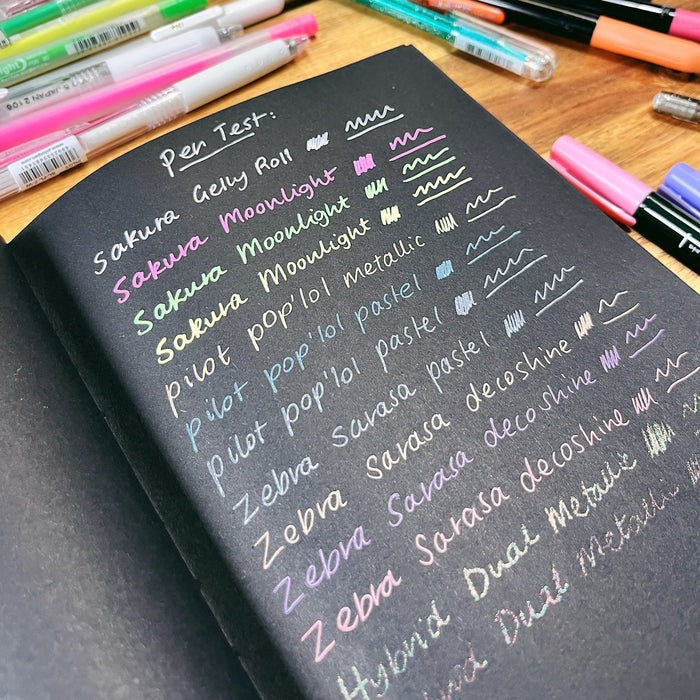 Pen Test:
Sakura Gelly Roll
Sakura Moonlight
Sakura Moonlight
Sakura Moonlight
pilot pop'lol metallic
pilot pop'lol pastel
pilot pop'lol pastel
Zebra Sarasa pastel
Zebra Sarasa decoshine
Zebra Sarasa decoshine
Zebra Sarasa decoshine
Hybrid Dual Metallic
Dual Metallic
JAPAN 2106